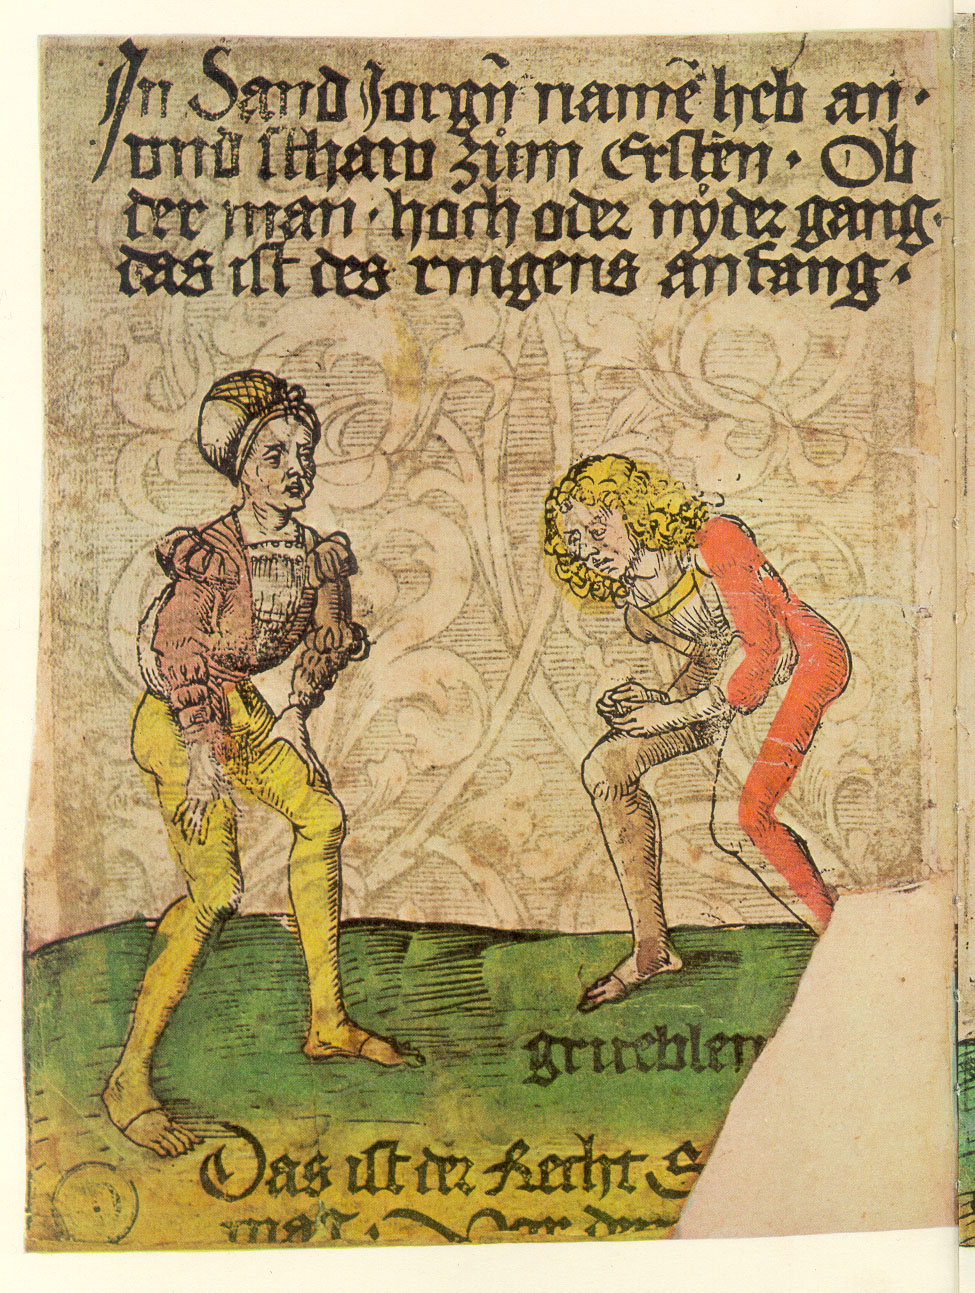 In Sand Jorgñ namẽ heb an ·
vnd̃ ſchaw zům Erſten · Ob
der man · hoch oder nẙder gang ·
das iſt des ringens anfang ·
grueblen
Das iſt der Recht S